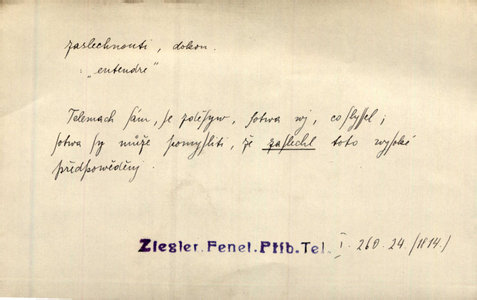 zaslechnouti, dokon.
: „entendre"
Telemach sám, se poděsyw, sotwa wj, co slyssel;
sotwa sy může pomysliti, že zaslechl toto wysoké
předpowěděnj.
Ziegler. Fenel. Přib. Tel. I. 260. 24. /1814./